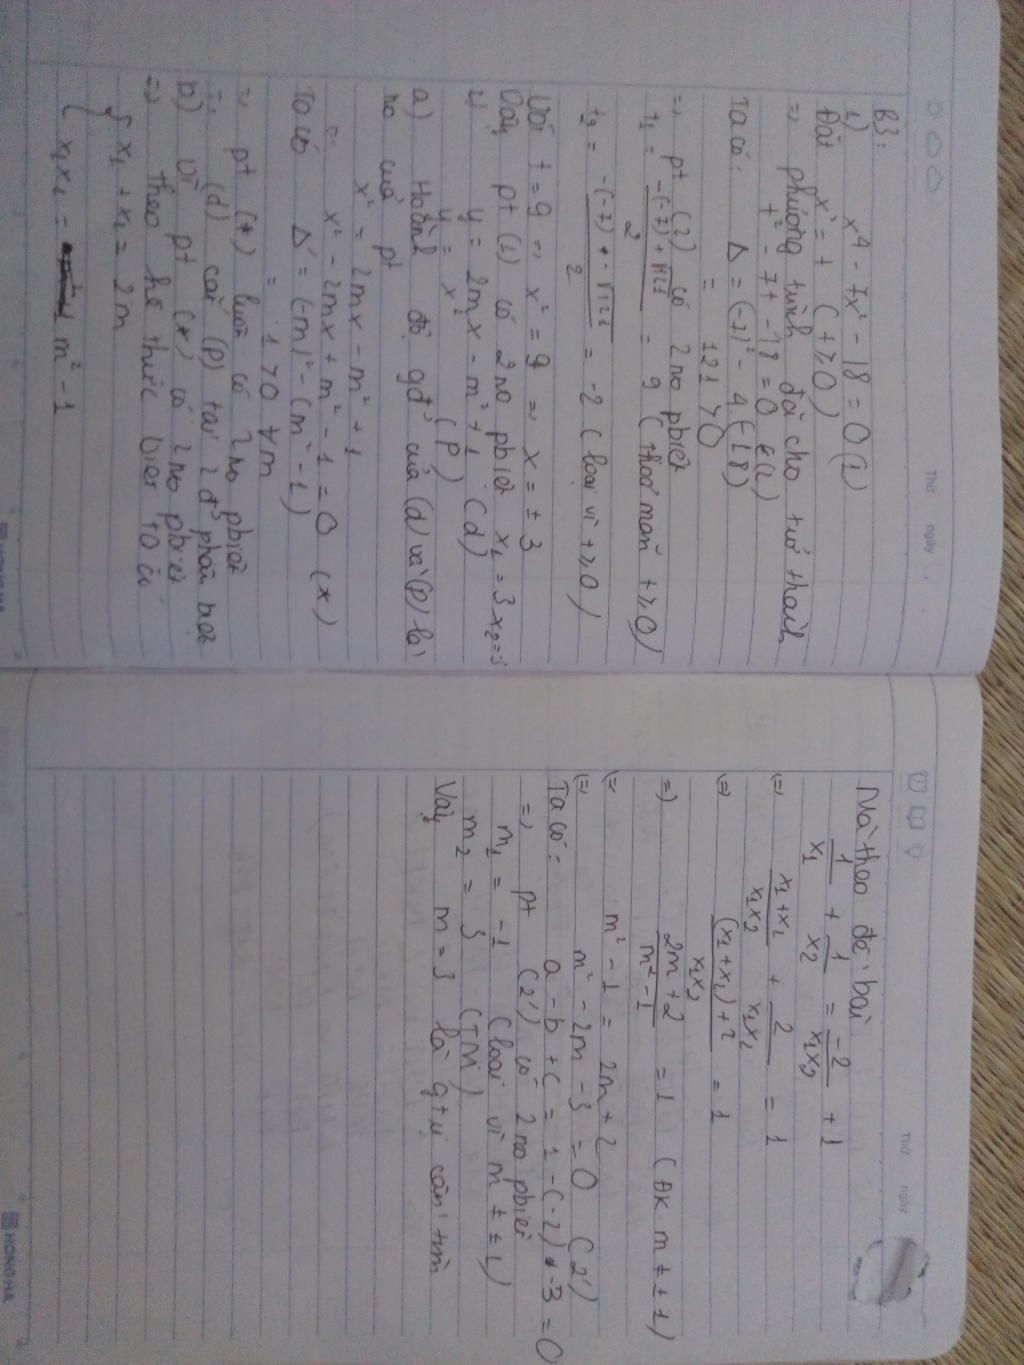 Thứ
ngày
B3:
1) x⁴ - 7x² - 18 = 0 (1)
Đặt x² = t (t ≥ 0)
=> phương trình đã cho trở thành
t² - 7t - 18 = 0 (2)
Ta có: Δ = (-7)² - 4.(-18)
= 121 > 0
=> pt (2) có 2 no pbiệt
t₁ = -(-7)+√121 / 2 = 9 (thoả mãn t ≥ 0)
t₂ = -(-7) - √121 / 2 = -2 (loại vì t ≥ 0)
Với t = 9 => x² = 9 => x = ± 3
Vậy pt (1) có 2 no pbiệt x₁ = 3 x₂ = -3
2) y = 2mx - m² + 1 (d)
y = x² (P)
a) Hoành độ gđ' của (d) và (P) là
no của pt
x² = 2mx - m² + 1
x² - 2mx + m² - 1 = 0 (*)
Ta có Δ' = (-m)² - (m² - 1)
= 1 > 0 ∀m
=> pt (*) luôn có 2 no pbiệt
=> (d) cắt (P) tại 2 đ' phân biệt
b) Vì pt (*) có 2 no pbiệt
=> theo hệ thức biet ta có
{ x₁ + x₂ = 2m
x₁x₂ = m² - 1
HONG HA
Thứ
ngày
Mà theo đề bài
1/x₁ + 1/x₂ = -2/x₁x₂ + 1
(=) x₁+x₂ / x₁x₂ + 2 / x₁x₂ = 1
(=) (x₁+x₂)+2 / x₁x₂ = 1
=) 2m+2 / m²-1 = 1 (ĐK m ≠ ± 1)
(= m² - 1 = 2m + 2
(= m² - 2m - 3 = 0 (2')
Ta có: a - b + c = 1 - (-2) + -3 = 0
=> pt (2') có 2 no pbiệt
m₁ = -1 (loại vì m ≠ ± 1)
m₂ = 3 (TM)
Vậy m = 3 là gtrị cần tìm
HONG HA